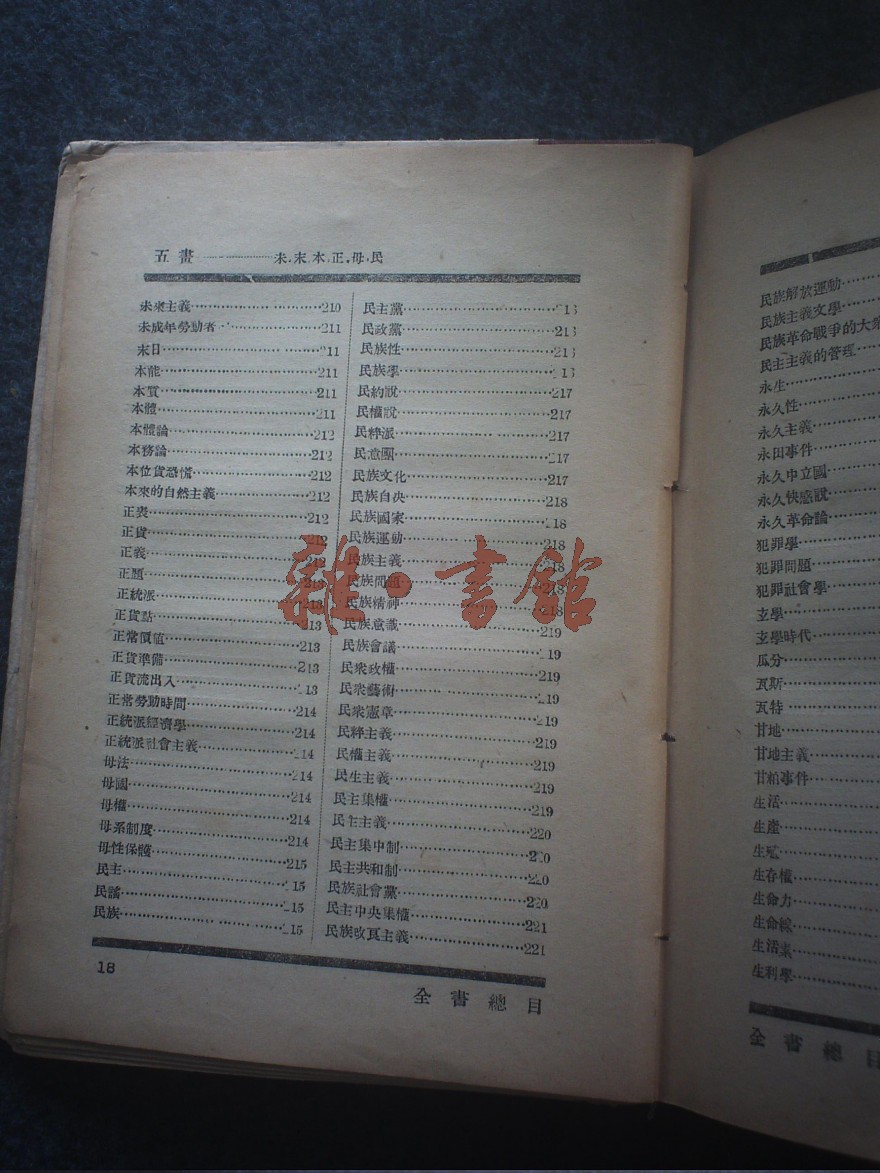 五畫……未.末.本.正.母.民
未來主義……210
未成年勞動者……211
末日……211
本能……211
本質……211
本體……211
本體論……212
本務論……212
本位貨恐慌……212
本來的自然主義……212
正表……212
正貨……212
正義……212
正題……213
正統派……213
正貨點……213
正常價値……213
正貨準備……213
正貨流出入……213
正常勞動時間……214
正統派經濟學……214
正統派社會主義……214
母法……214
母國……214
母權……214
母系制度……214
母性保護……215
民主……215
民謠……215
民族……215
民主黨
民政黨
民族性
民族學
民約說……217
民權說……217
民粹派……217
民意團……217
民族文化……217
民族自決……218
民族國家……218
民族運動……218
民族主義……218
民族問題……218
民族精神……218
民族意識……219
民族會議……219
民衆政權……219
民衆藝術……219
民衆憲章……219
民粹主義……219
民權主義……219
民生主義……219
民主集權……219
民主主義……220
民主集中制……220
民主共和制……220
民族社會黨……220
民主中央集權……221
民族改良主義……221
18
全書總目
民族解放運動……
民族主義文學……
民族革命戰爭的大衆
民主主義的管理……
永生……
永久性……
永久主義……
永田事件……
永久中立國……
永久快感說……
永久革命論……
犯罪學……
犯罪問題……
犯罪社會學……
玄學……
玄學時代……
瓜分……
瓦斯……
瓦特……
甘地……
甘地主義……
甘粕事件……
生活……
生產……
生存權……
生命力……
生命線……
生活素……
生利學……
全書總目
雜·書館